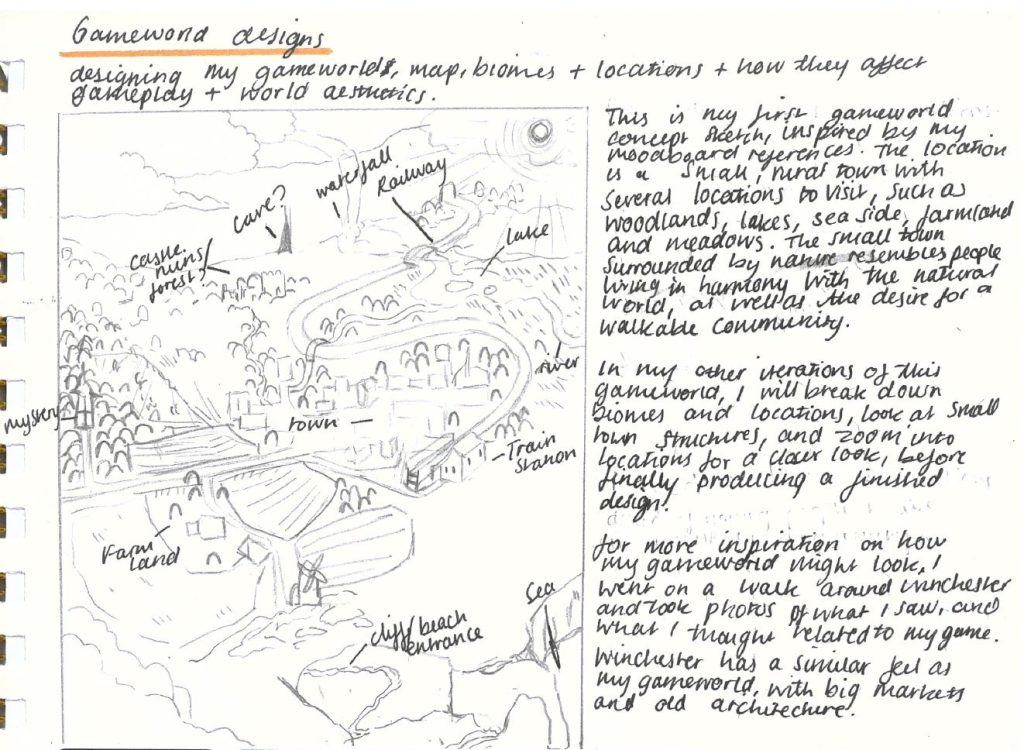 Gameworld designs
designing my gameworlds, map, biomes + locations + how they affect
gameplay + world aesthetics.
This is my first gameworld
concept sketch, inspired by my
moodboard references. The location
is a small, rural town with
several locations to visit, such as
woodlands, lakes, sea side, farmland
and meadows. The small town
surrounded by nature resembles people
living in harmony with the natural
world, as well as the desire for a
walkable community.
In my other iterations of this
gameworld, I will break down
biomes and locations, look at small
town structures, and zoom into
locations for a closer look, before
finally producing a finished
design.
for more inspiration on how
my gameworld might look, I
went on a walk around winchester
and took photos of what I saw, and
what I thought related to my game.
Winchester has a similar feel as
my gameworld, with big markets
and old architecture.
waterfall
Railway
cave?
lake
castle
ruins/
forest?
river
mystery
town
Train
station
Farm
land
Sea
cliff/beach
entrance